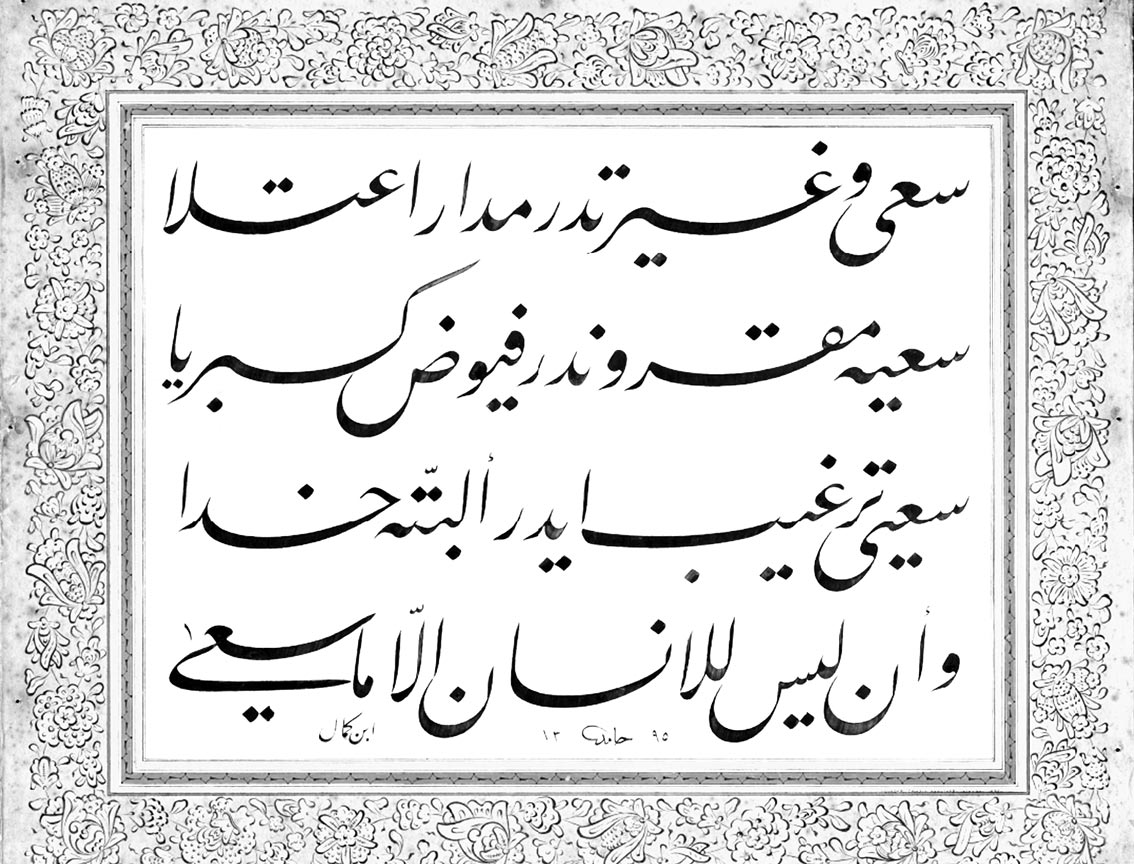 سعی و غیرتدر مدار اعتلا
سعیه مقروندر فیوض کبریا
سعیی ترغیب ایدر ألبتّه خدا
وأن لیس للانسان الّا ما سعیٰ
ابن کمال حامد ١٣٩٥